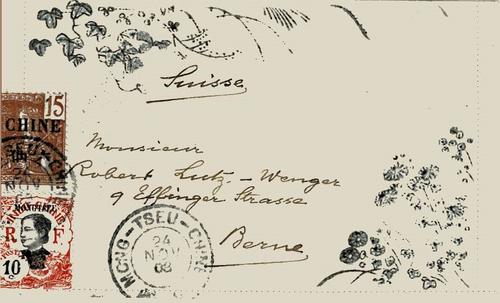 Suisse
Monsieur
Robert Lutz - Wenger
9 Effinger Strasse
Berne
15
CHINE
R F
10
MONG-TSEU-CHINE
24
NOV